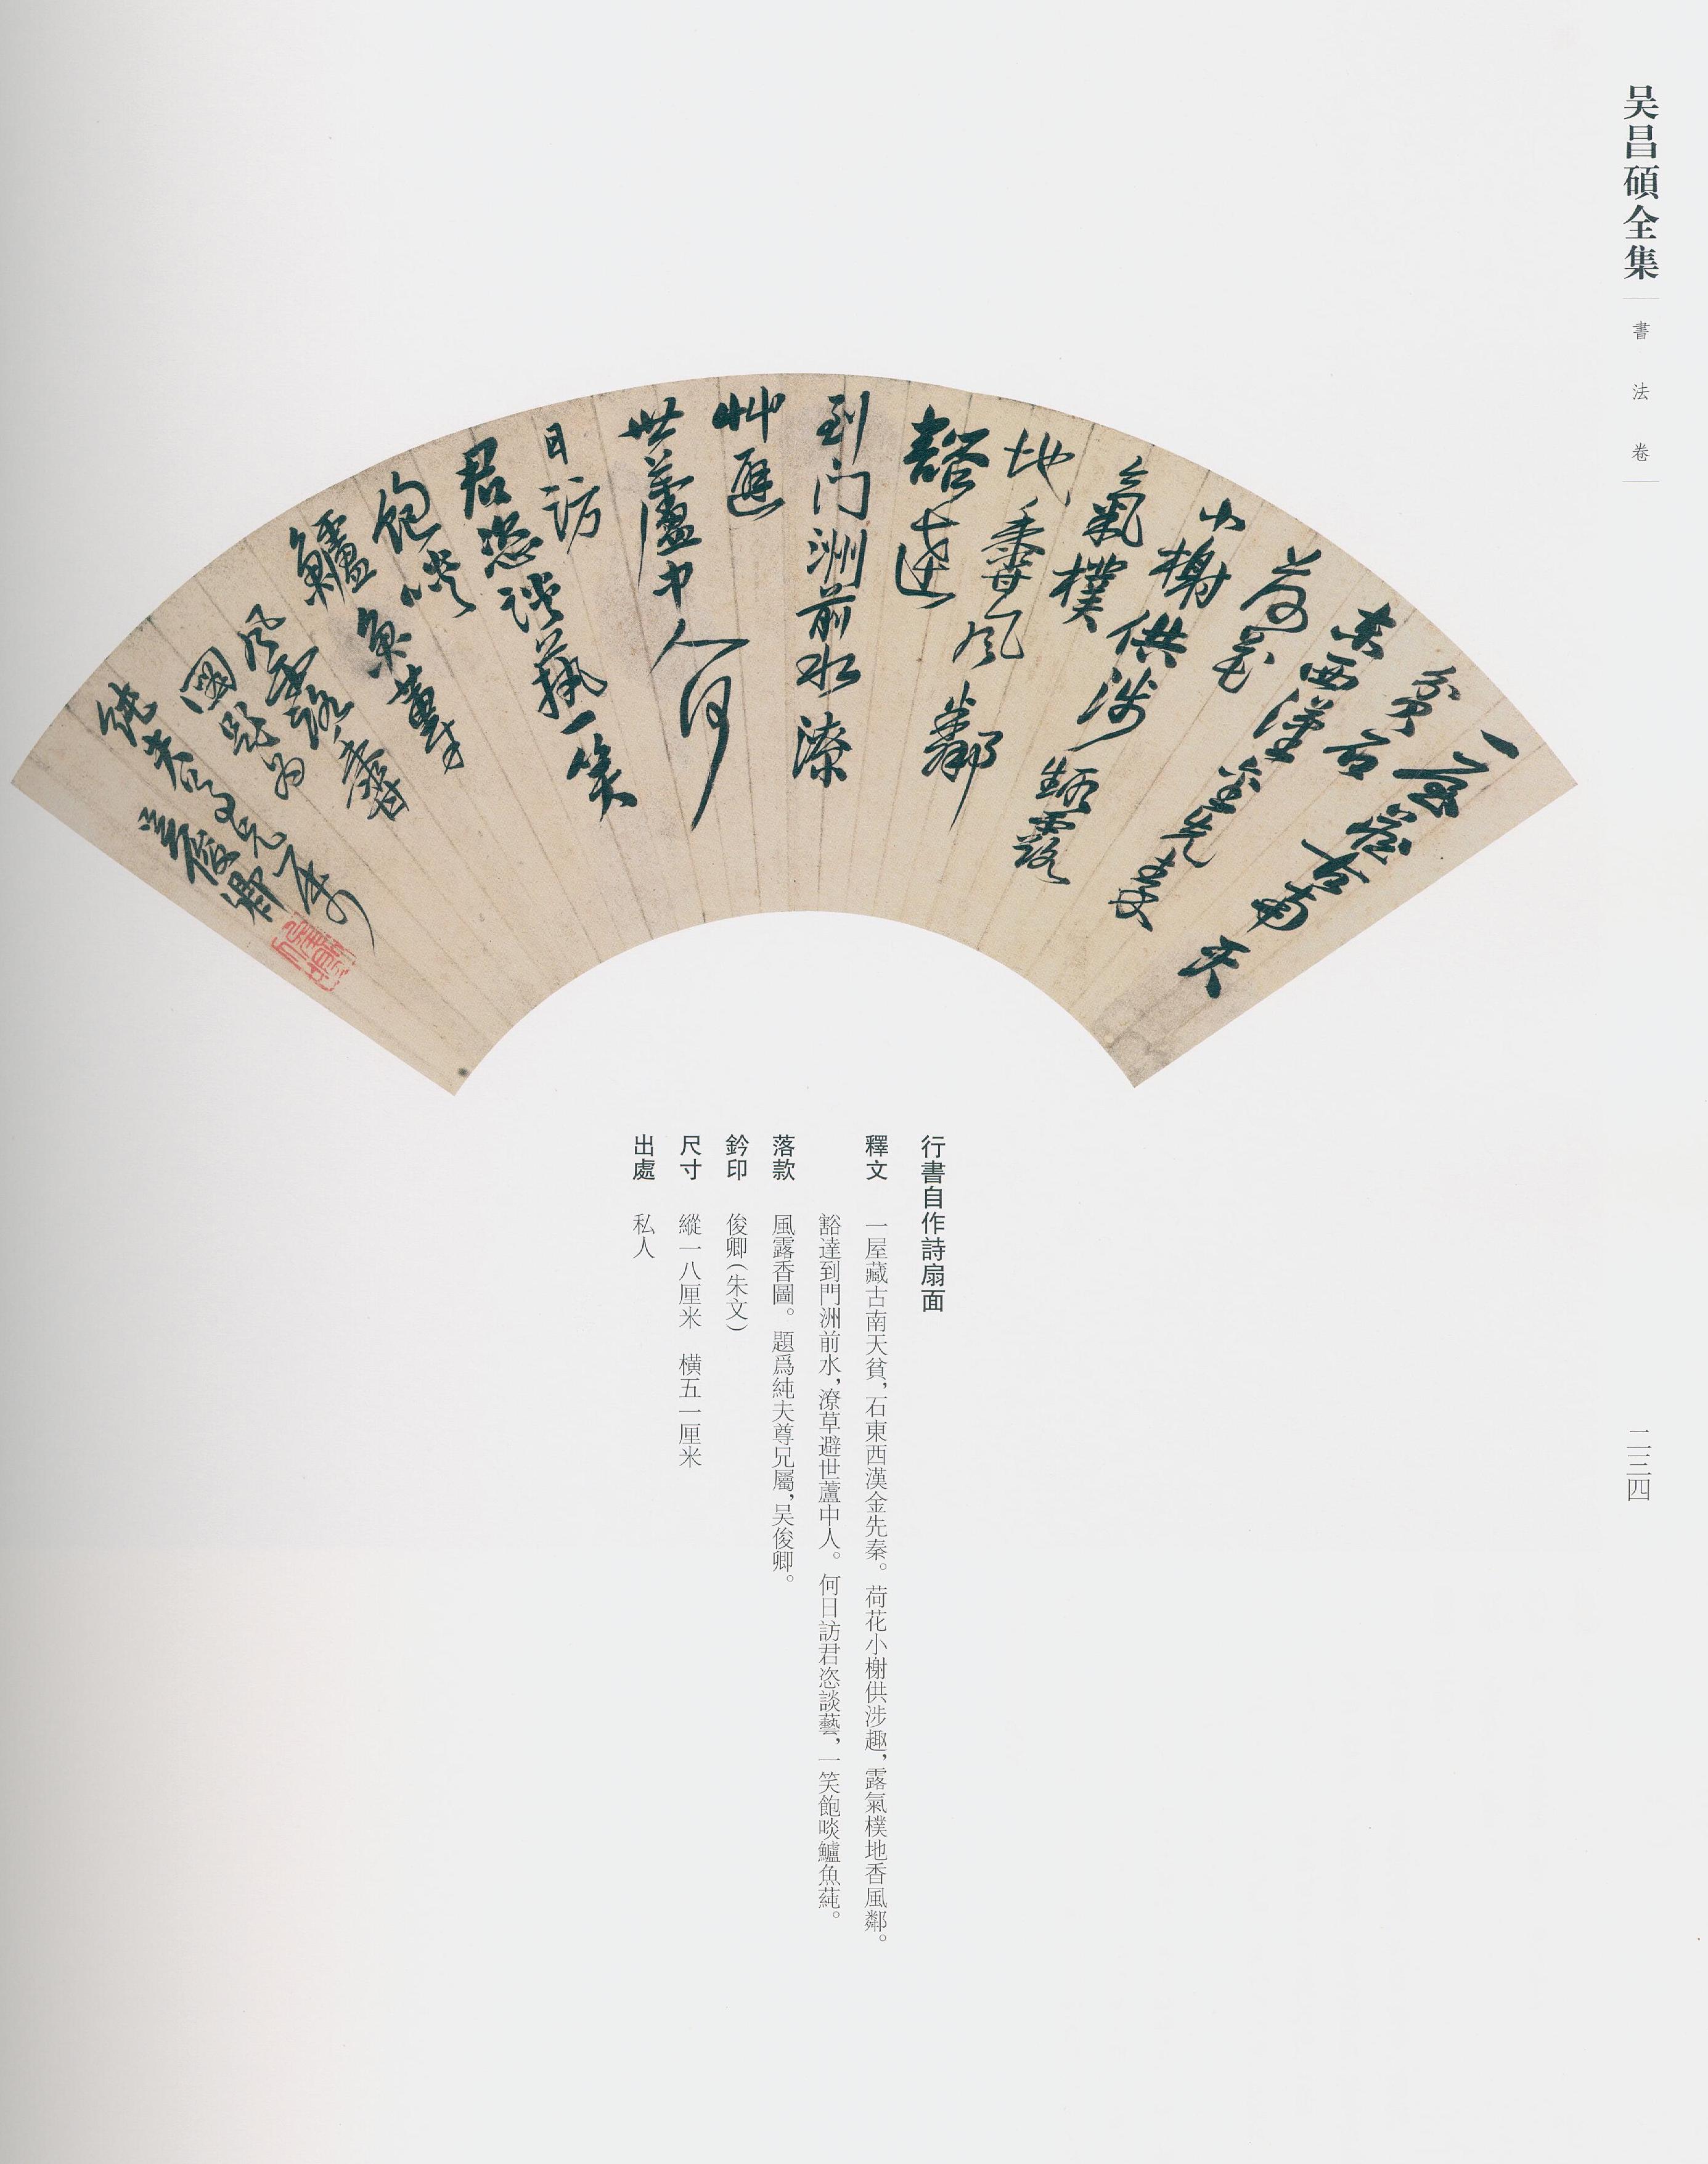 吴昌碩全集
書法卷
一屋藏古南天
貧石
東西漢金先秦
荷花
小榭供涉趣露
氣樸
地香風鄰
豁達
到门洲前水潦
艸避
世蘆中人何
日訪
君恣談藝一笑
飽啖
鱸魚蓴
風露香
圖題為
純夫尊兄屬
吴俊卿
俊卿
行書自作詩扇面
釋文　一屋藏古南天貧，石東西漢金先秦。荷花小榭供涉趣，露氣樸地香風鄰。
豁達到門洲前水，潦草避世蘆中人。何日訪君恣談藝，一笑飽啖鱸魚蒓。
落款　風露香圖。題爲純夫尊兄屬，吴俊卿。
鈐印　俊卿（朱文）
尺寸　縱一八厘米　橫五一厘米
出處　私人
二三四